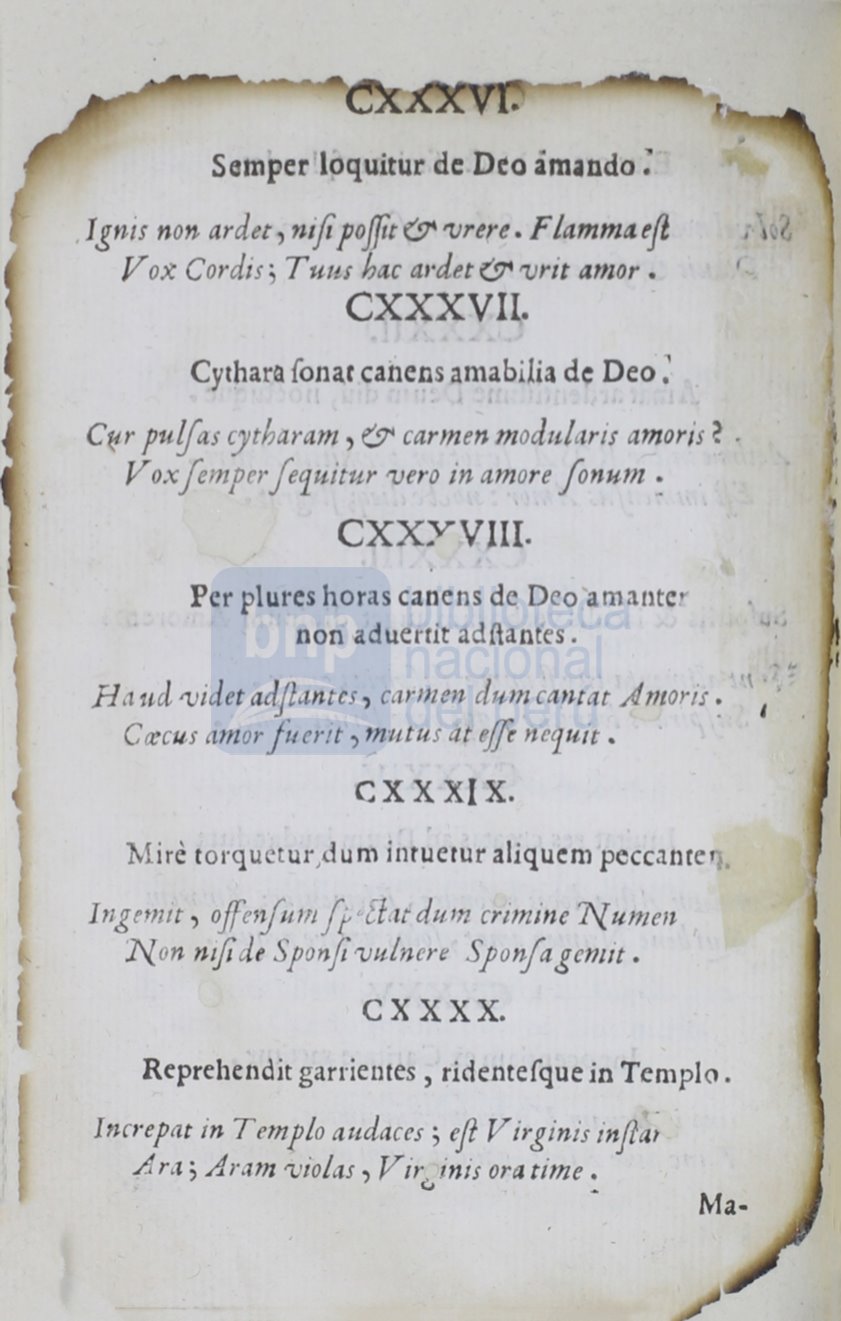 CXXXVI.
Semper loquitur de Deo amando.
Ignis non ardet, niſi poſſit & vrere. Flamma eſt
Vox Cordis; Tuus hac ardet & vrit amor.
CXXXVII.
Cythara ſonat canens amabilia de Deo.
Cur pulſas cytharam, & carmen modularis amoris?
Vox ſemper ſequitur vero in amore ſonum.
CXXXVIII.
Per plures horas canens de Deo amanter
non aduertit adſtantes.
Haud videt adſtantes, carmen dum cantat Amoris.
Cæcus amor fuerit, mutus at eſſe nequit.
CXXXIX.
Mirè torquetur, dum intuetur aliquem peccantem.
Ingemit, offenſum ſpectat dum crimine Numen
Non niſi de Sponſi vulnere Sponſa gemit.
CXXXX.
Reprehendit garrientes, ridenteſque in Templo.
Increpat in Templo audaces; eſt Virginis inſtar
Ara; Aram violas, Virginis ora time.
Ma-
bnp biblioteca
nacional
del perú